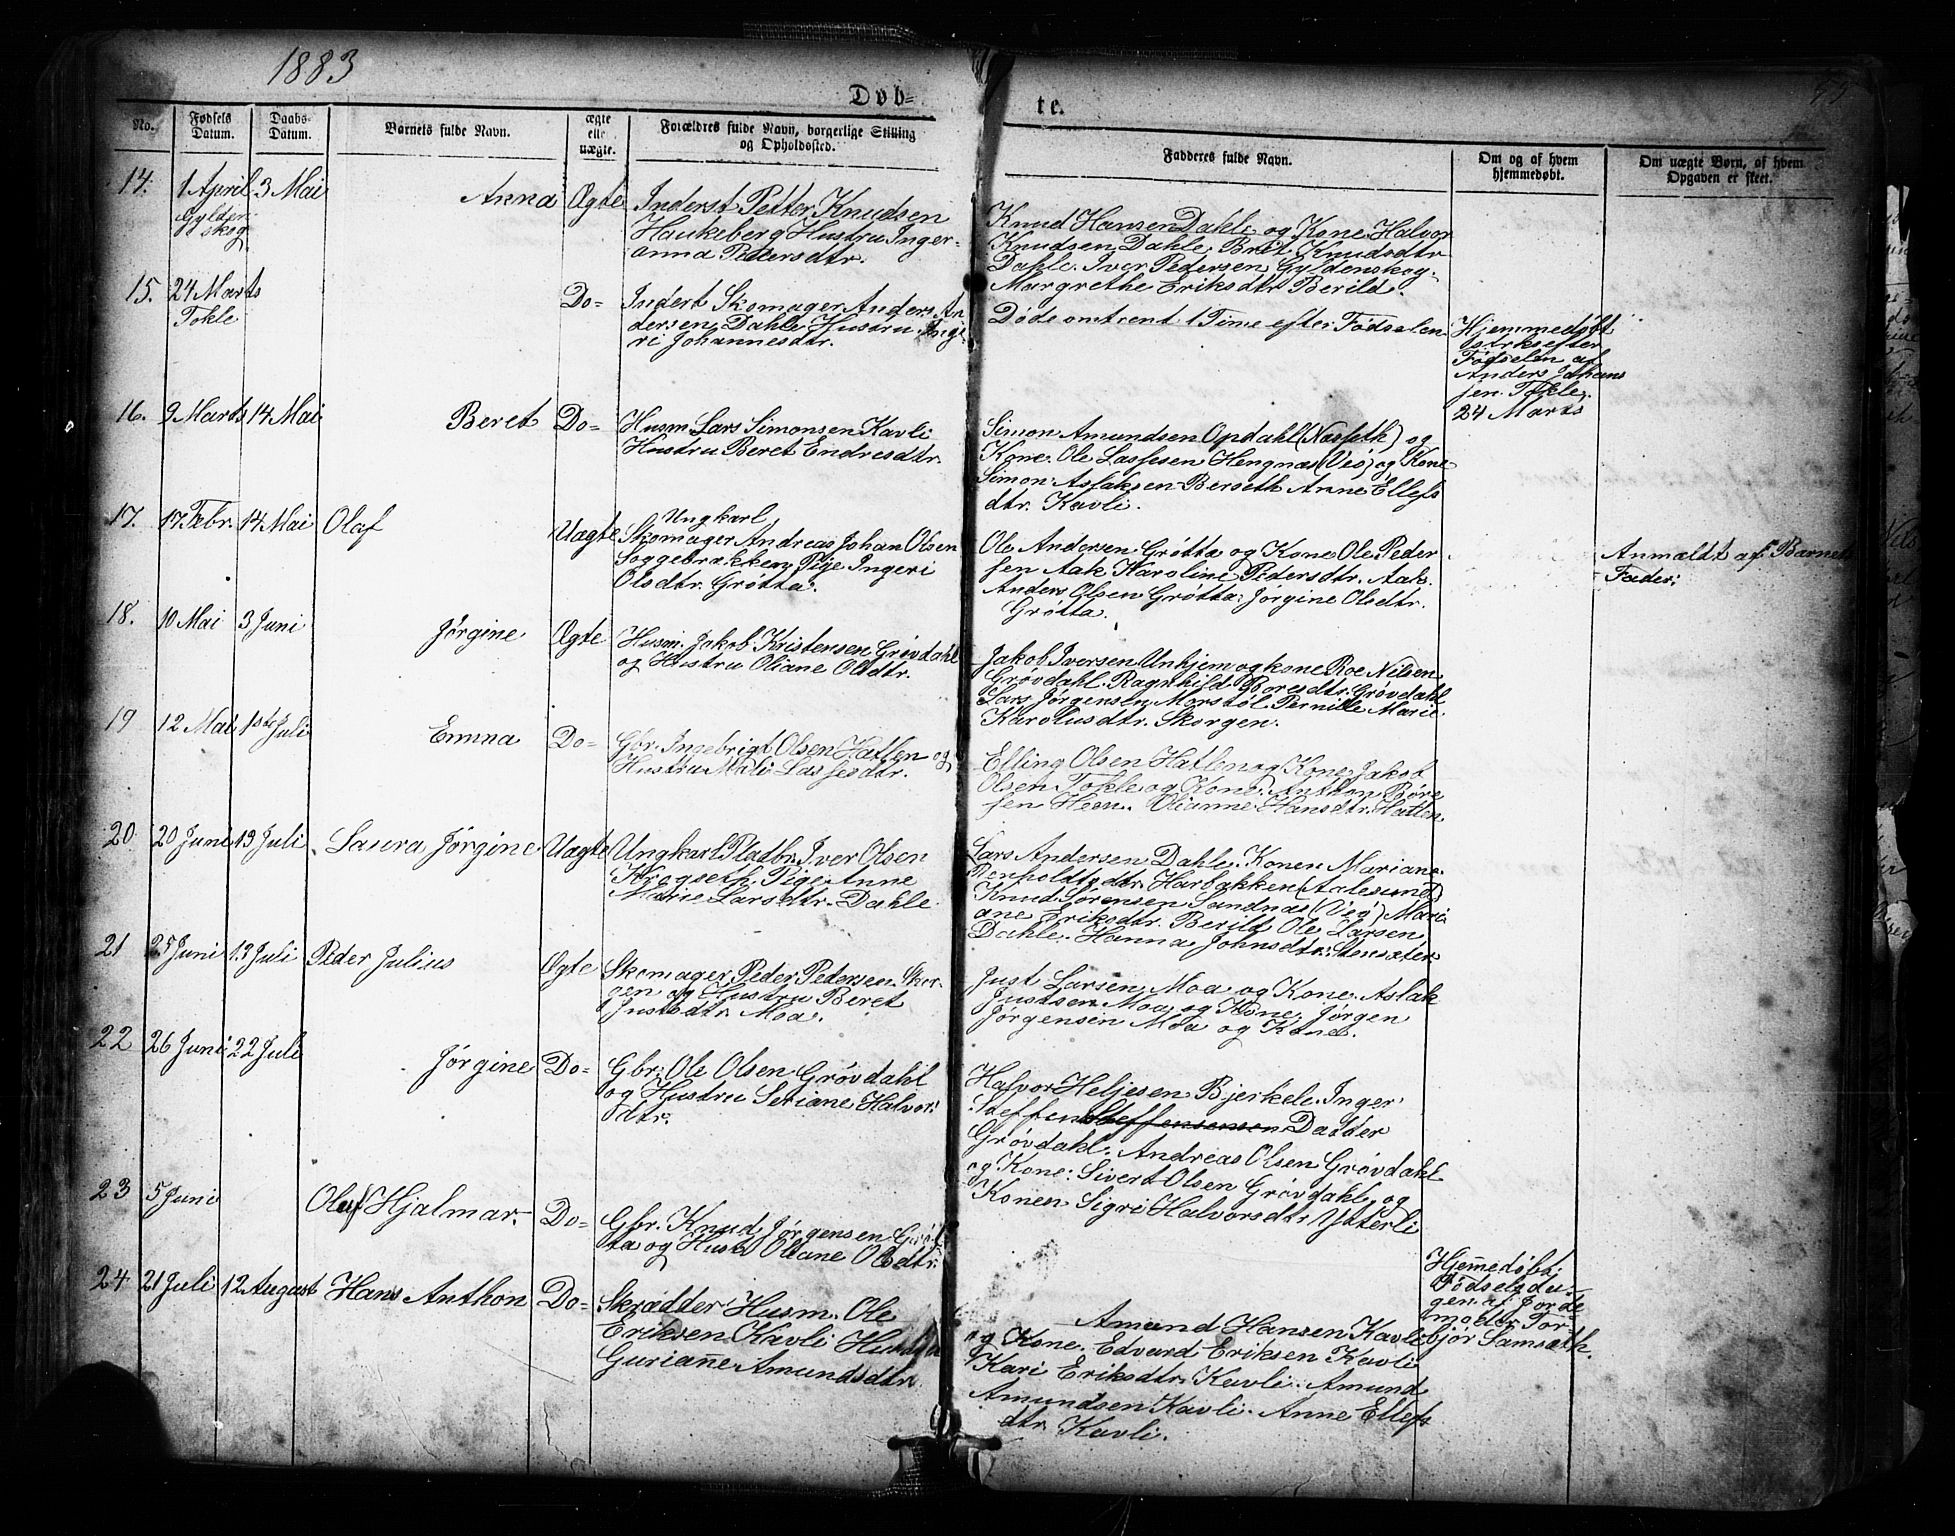 1883
Døb=
te.
95
No.
Fødsels Datum.
Daabs-Datum.
Barnets fulde Navn.
ægte elle uægte.
Forældres fulde Navn, borgerlige Stilling
og Opholdssted.
Fadderes fulde Navn.
Om og af hvem
hjemmedøbt.
Om uægte Børn, af hvem
Opgaven er skeet.
14. 1 April 3 Mai Anna Ægte
Gylden
skog
Inderst Petter Knudsen
Haukeberg Hustru Inger
anna Pedersdtr.
Knud Hansen Dahle og Kone. Halvor
Knudsen Dahle. Brit Knudsdtr
Dahle. Iver Pedersen Gyldenskog.
Margrethe Eriksdtr Berild.
15. 24 Marts Do=
Tokle
Indert Skomager Anders An
dersen Dahle Hustru Inge
ri Johannesdtr.
Døde omtrent 1 Time efter Fødselen
Hjemmedøbt
strks efter
Fødselen af
Anders Johans
sen Tokle.
24 Marts
16. 9 Marts 14 Mai Beret Do=
Husm Lars Simonsen Kavli
Hustru Beret Endresdtr.
Simon Amundsen Opdahl (Næsseth) og
Kone. Ole Lassesen Hengnæs (Veø) og Kone
Simon Aslaksen Berseth Anne Ellefs
dtr. Kavli.
17. 17 Febr. 14 Mai Olaf Uægte
Ungkarl
Skomager Andreas Johan Olsen
Soggebrækken Pige Ingeri
Olsdtr. Grøtta.
Ole Andersen Grøtta og Kone Ole Peder
sen Aak Karoline Pedersdtr. Aak.
Anders Olsen Grøtta. Jørgine Olsdtr.
Grøtta.
Anmældt af Barnets
Fader.
18. 10 Mai 3 Juni Jørgine Ægte
Husm. Jakob Kristensen Grøvdahl
og Hustru Oliane Olsdtr.
Jakob Iversen Unhjem og kone Roe Nilsen
Grøvdahl. Ragnhild Boresdtr. Grøvdahl
Lars Jørgensen Morstøl Pernille Marie
Karolusdtr. Skorgen.
19 12 Mai 1ste Juli Emma Do=
Gbr. Ingebrigt Olsen Hatlen og
Hustru Mali Lassesdtr.
Elling Olsen Hatlen og Kone. Jakob
Olsen Tokle og Kone. Anthon Børe
sen Heen. Olianne Hansdtr. Hatlen
20 20 Juni 13 Juli Laura Jørgine Uægte
Ungkarl Pladbr. Iver Olsen
Krogseth Pige Anne
Marie Larsdtr. Dahle.
Lars Andersen Dahle. Konen Mariane
Renholdtsdtr. Harbakken (Aalesund)
Knud Sørensen Sandnæs (Veø) Mari
ane Eriksdtr. Berild Ole Larsen
Dahle. Hanna Johnsdtr. Stensæter
21 25 Juni 13 Juli Peder Julius Ægte
Skomager Peder Pedersen Skor
gen og Hustru Beret
Justsdtr. Moa.
Just Larsen Moa og Kone. Aslak
Justsen Moa og Kone. Jørgen
Jørgensen Moa og Kone.
22 26 Juni 22 Juli Jørgine Do=
Gbr. Ole Olsen Grøvdahl
og Hustru Seriane Halvor
sdtr.
Halvor Heljesen Bjerkeli. Inger
Steffen Steffensensen Datter
Grøvdahl. Andreas Olsen Grøvdahl
og Kone: Sivert Olsen Grøvdahl og
Konen Sigri Halvorsdtr. Ytterli
23 5 Juni Oluf Hjalmar. Do=
Gbr. Knud Jørgensen Grøt
ta og Hustr Oliane Olsdtr.
Hjemmedøbt
Fødselsda-
gen af Jorde
moder Tor-
bjør Samsæth.
24 21 Juli 12 August Hans Anthon Do=
Skrædder Husm. Ole
Eriksen Kavli Hustru
Guriane Amundsdtr.
Amund Hansen Kavli
og Kone. Edvard Eriksen Kavli
Kari Eriksdtr. Kavli. Amund
Amundsen Kavli. Anne Ellefs
dtr. Kavli.